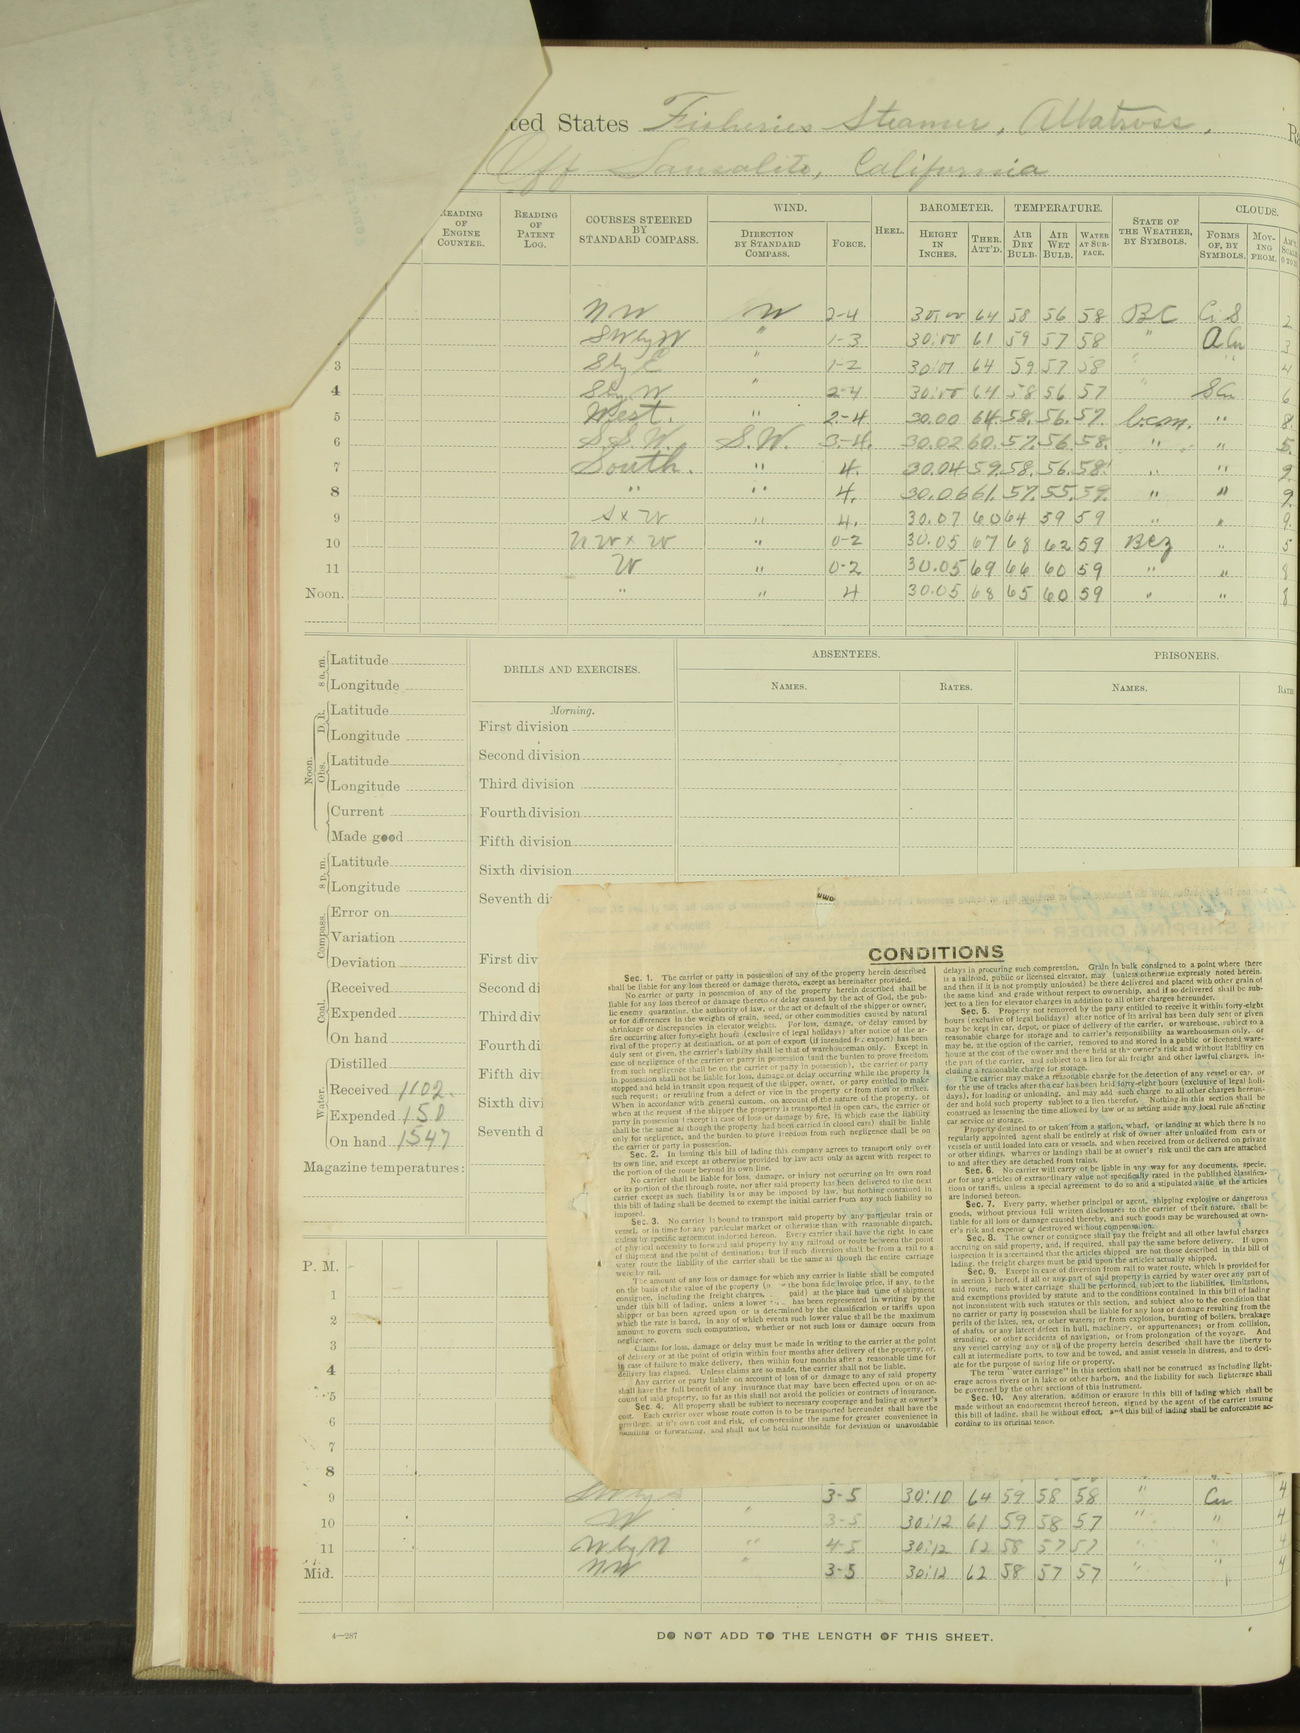 ted States Fisheries Steamer, Albatross, Ra
Off Sausalito, California
READING OF ENGINE COUNTER. READING OF PATENT LOG. COURSES STEERED BY STANDARD COMPASS. WIND. DIRECTION BY STANDARD COMPASS. FORCE. HEEL. BAROMETER. HEIGHT IN INCHES. THER. ATT'D. TEMPERATURE. AIR DRY BULB. AIR WET BULB. WATER AT SURFACE. STATE OF THE WEATHER, BY SYMBOLS. CLOUDS. FORMS OF, BY SYMBOLS. MOVING FROM.
NW W 2-4 30.00 64 58 56 58 BC Ci S 2
SW by W " 1-3 30.00 61 59 57 58 " A Cu 3
3 S by E " 1-2 64 59 57 58 " " 4
4 S by W " 2-4 64 58 56 57 " S Cu 6
5 West. " 2-4 30.00 64. 58. 56. 57. b.c.m. " 8.
6 S.S.W. S.W. 3-4. 30.02 60. 57. 56. 58. " " 5.
7 South. " 4. 30.04 59. 58. 56. 58. " " 9.
8 " " 4. 30.06 61. 57. 55. 59. " " 9.
9 S x W " 4. 30.07 60 64 59 59 " " 9.
10 NW x W " 0-2 30.05 67 68 62 59 BCZ " 5
11 W " 0-2 30.05 69 66 60 59 " " 8
Noon. " " 4 30.05 68 65 60 59 " " 8
8 a. m. Latitude
Longitude
Noon. D. R. Latitude
Longitude
Obs. Latitude
Longitude
Current
Made good
8 p. m. Latitude
Longitude
Compass. Error on
Variation
Deviation
Coal. Received
Expended
On hand
Water. Distilled
Received 1102.
Expended 158
On hand 1547
Magazine temperatures:
DRILLS AND EXERCISES.
Morning.
First division
Second division
Third division
Fourth division
Fifth division
Sixth division
Seventh di
First div
Second di
Third div
Fourth di
Fifth div
Sixth divi
Seventh d
ABSENTEES.
NAMES. RATES.
PRISONERS.
NAMES. RATE
CONDITIONS
Sec. 1. The carrier or party in possession of any of the property herein described
shall be liable for any loss thereof or damage thereto, except as hereinafter provided.
No carrier or party in possession of any of the property herein described shall be
liable for any loss thereof or damage thereto or delay caused by the act of God, the pub-
lic enemy, quarantine, the authority of law, or the act or default of the shipper or owner,
or for differences in the weights of grain, seed, or other commodities caused by natural
shrinkage or discrepancies in elevator weights. For loss, damage, or delay caused by
fire occurring after forty-eight hours (exclusive of legal holidays) after notice of the ar-
rival of the property at destination, or at port of export (if intended for export) has been
duly sent or given, the carrier's liability shall be that of warehouseman only. Except in
case of negligence of the carrier or party in possession (and the burden to prove freedom
from such negligence shall be on the carrier or party in possession), the carrier or party
in possession shall not be liable for loss, damage or delay occurring while the property is
stopped and held in transit upon request of the shipper, owner, or party entitled to make
such request; or resulting from a defect or vice in the property or from riots or strikes.
When in accordance with general custom, on account of the nature of the property, or
when at the request of the shipper the property is transported in open cars, the carrier or
party in possession (except in case of loss or damage by fire, in which case the liability
shall be the same as though the property had been carried in closed cars) shall be liable
only for negligence, and the burden to prove freedom from such negligence shall be on
the carrier or party in possession.
Sec. 2. In issuing this bill of lading this company agrees to transport only over
its own line, and except as otherwise provided by law acts only as agent with respect to
the portion of the route beyond its own line.
No carrier shall be liable for loss, damage, or injury not occurring on its own road
or its portion of the through route, nor after said property has been delivered to the next
carrier except as such liability is or may be imposed by law, but nothing contained in
this bill of lading shall be deemed to exempt the initial carrier from any such liability so
imposed.
Sec. 3. No carrier is bound to transport said property by any particular train or
vessel, or in time for any particular market or otherwise than with reasonable dispatch,
unless by specific agreement indorsed hereon. Every carrier shall have the right in case
of physical necessity to forward said property by any railroad or route between the point
of shipment and the point of destination; but if such diversion shall be from a rail to a
water route the liability of the carrier shall be the same as though the entire carriage
were by rail.
The amount of any loss or damage for which any carrier is liable shall be computed
on the basis of the value of the property the bona fide invoice price, if any, to the
consignee, including the freight charges, paid) at the place and time of shipment
under this bill of lading, unless a lower has been represented in writing by the
shipper or has been agreed upon or is determined by the classification or tariffs upon
which the rate is based, in any of which events such lower value shall be the maximum
amount to govern such computation, whether or not such loss or damage occurs from
negligence.
Claims for loss, damage or delay must be made in writing to the carrier at the point
of delivery or at the point of origin within four months after delivery of the property, or,
in case of failure to make delivery, then within four months after a reasonable time for
delivery has elapsed. Unless claims are so made, the carrier shall not be liable.
Any carrier or party liable on account of loss of or damage to any of said property
shall have the full benefit of any insurance that may have been effected upon or on ac-
count of said property, so far as this shall not avoid the policies or contracts of insurance.
Sec. 4. All property shall be subject to necessary cooperage and baling at owner's
cost. Each carrier over whose route cotton is to be transported hereunder shall have the
privilege, at its own cost and risk, of compressing the same for greater convenience in
handling or forwarding, and shall not be held responsible for deviation or unavoidable
delays in procuring such compression. Grain in bulk consigned to a point where there
is a railroad, public or licensed elevator, may (unless otherwise expressly noted herein,
and then if it is not promptly unloaded) be there delivered and placed with other grain of
the same kind and grade without respect to ownership, and if so delivered shall be sub-
ject to a lien for elevator charges in addition to all other charges hereunder.
Sec. 5. Property not removed by the party entitled to receive it within forty-eight
hours (exclusive of legal holidays) after notice of its arrival has been duly sent or given
may be kept in car, depot, or place of delivery of the carrier, or warehouse, subject to a
reasonable charge for storage and to carrier's responsibility as warehouseman only, or
may be, at the option of the carrier, removed to and stored in a public or licensed ware-
house at the cost of the owner and there held at the owner's risk and without liability on
the part of the carrier, and subject to a lien for all freight and other lawful charges, in-
cluding a reasonable charge for storage.
The carrier may make a reasonable charge for the detention of any vessel or car, or
for the use of tracks after the car has been held forty-eight hours (exclusive of legal holi-
days), for loading or unloading, and may add such charge to all other charges hereun-
der and hold such property subject to a lien therefor. Nothing in this section shall be
construed as lessening the time allowed by law or as setting aside any local rule affecting
car service or storage.
Property destined to or taken from a station, wharf, or landing at which there is no
regularly appointed agent shall be entirely at risk of owner after unloaded from cars or
vessels or until loaded into cars or vessels, and when received from or delivered on private
or other sidings, wharves or landings shall be at owner's risk until the cars are attached
to and after they are detached from trains.
Sec. 6. No carrier will carry or be liable in any way for any documents, specie,
or for any articles of extraordinary value not specifically rated in the published classifica-
tions or tariffs, unless a special agreement to do so and a stipulated value of the articles
are indorsed hereon.
Sec. 7. Every party, whether principal or agent, shipping explosive or dangerous
goods, without previous full written disclosure to the carrier of their nature, shall be
liable for all loss and damage caused thereby, and such goods may be warehoused at own-
er's risk and expense or destroyed without compensation.
Sec. 8. The owner or consignee shall pay the freight and all other lawful charges
accruing on said property, and, if required, shall pay the same before delivery. If upon
inspection it is ascertained that the articles shipped are not those described in this bill of
lading, the freight charges must be paid upon the articles actually shipped.
Sec. 9. Except in case of diversion from rail to water route, which is provided for
in section 3 hereof, if all or any part of said property is carried by water over any part of
said route, such water carriage shall be performed subject to the liabilities, limitations,
and exemptions provided by statute and to the conditions contained in this bill of lading
not inconsistent with such statutes or this section, and subject also to the condition that
no carrier or party in possession shall be liable for any loss or damage resulting from the
perils of the lakes, sea, or other waters; or from explosion, bursting of boilers, breakage
of shafts, or any latent defect in hull, machinery, or appurtenances; or from collision,
stranding, or other accidents of navigation, or from prolongation of the voyage. And
any vessel carrying any or all of the property herein described shall have the liberty to
call at intermediate ports, to tow and be towed, and assist vessels in distress, and to devi-
ate for the purpose of saving life or property.
The term "water carriage" in this section shall not be construed as including light-
erage across rivers or in lake or other harbors, and the liability for such lighterage shall
be governed by the other sections of this instrument.
Sec. 10. Any alteration, addition or erasure in this bill of lading which shall be
made without an endorsement thereof hereon, signed by the agent of the carrier issuing
this bill of lading, shall be without effect, and this bill of lading shall be enforceable ac-
cording to its original tenor.
P. M.
1
2
3
4
5
6
7
8
9 3-5 30:10 64 59 58 58 " Cu 4
10 W " 3-5 30:12 61 59 58 57 " " 4
11 W by N " 4-5 30:12 62 58 57 57 " " 4
Mid. NW " 3-5 30:12 62 58 57 57 " " 4
4—287
DO NOT ADD TO THE LENGTH OF THIS SHEET.